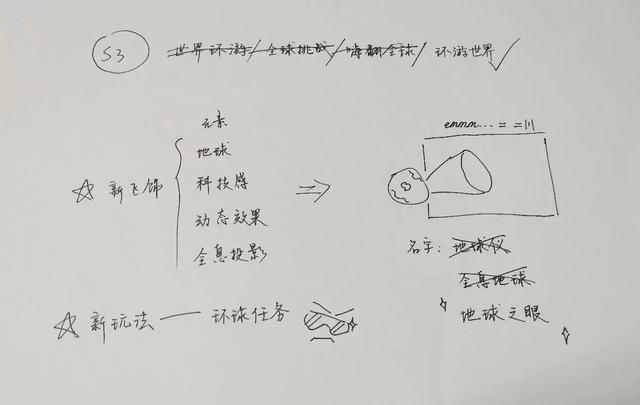 S3 世界环游/全球挑战/嗨翻全球/ 环游世界
元素
地球
☆ 新飞饰 科技感 ⇒
动态效果
全息投影
emmm... = = |||
名字: 地球仪
全息地球
地球之眼
☆ 新玩法 — 环球任务